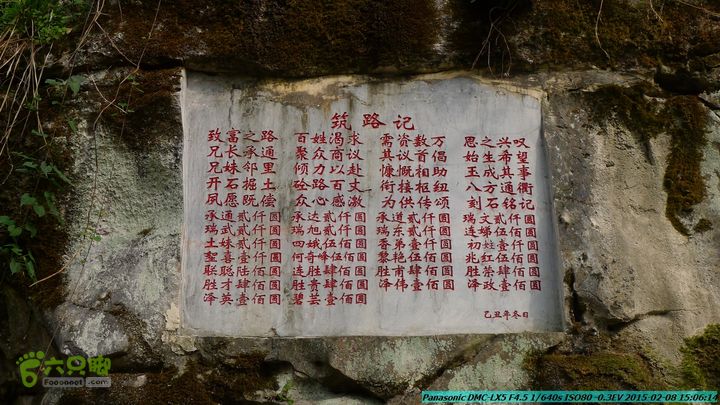 筑路记
致富之路 百姓渴求 需资数万 思之兴叹
兄长承通 聚众商议 其议首倡 始生希望
兄妹邻里 倾力以赴 慷慨相助 王成其事
开石掘土 砼路百丈 衔接枢纽 八方通衢
夙愿既偿 众心感激 为供传颂 刻石铭记
承通贰仟圆 承达贰仟圆 承道贰仟圆 瑞文贰仟圆
瑞武贰仟圆 瑞旭贰仟圆 瑞东贰仟圆 连娣贰伍圆
土妹贰仟圆 四娥贰伍佰圆 香弟壹仟圆 初姓壹伍佰圆
喜壹佰圆 何奇峰伍佰圆 黎艳伍佰圆 兆红伍佰圆
联聪陆佰圆 连胜肆佰圆 胜甫肆佰圆 胜荣肆佰圆
胜才肆佰圆 连贵壹佰圆 泽伟壹佰圆 泽政壹佰圆
泽英壹佰圆 碧芸壹佰圆
己丑年冬日
六只脚
Foooooot.com
Panasonic DMC-LX5 F4.5 1/640s ISO80 -0.3EV 2015-02-08 15:06:14